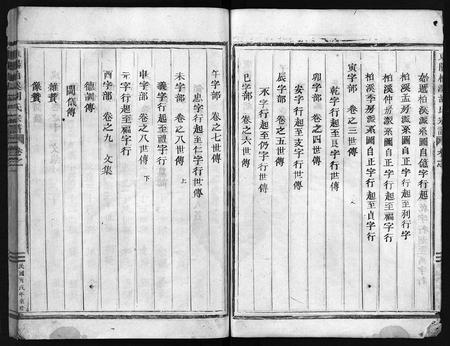 始遷柏溪派系圖自億字行起
柏溪孟房派系圖自正字行起至列行字
柏溪仲房派系圖自正字行起至福字行
柏溪季房派系圖自正字行起至貞字行
寅字部 卷之三世傳
乾字行起至艮字行
卯字部 卷之四世傳
安字行起至支字行世傳
辰字部 卷之五世傳
永字行起至仍字行世傳
巳字部 卷之六世傳
午字部 卷之七世傳
忠字行起至仁字行世傳
未字部 卷之八世傳 上
義字行起至禮字行
申字部 卷之八世傳 下
元字行起至福字行
酉字部 卷之九 文集
德訓傳
閫儀傳
雜贊
像贊
民國丙戌年重修